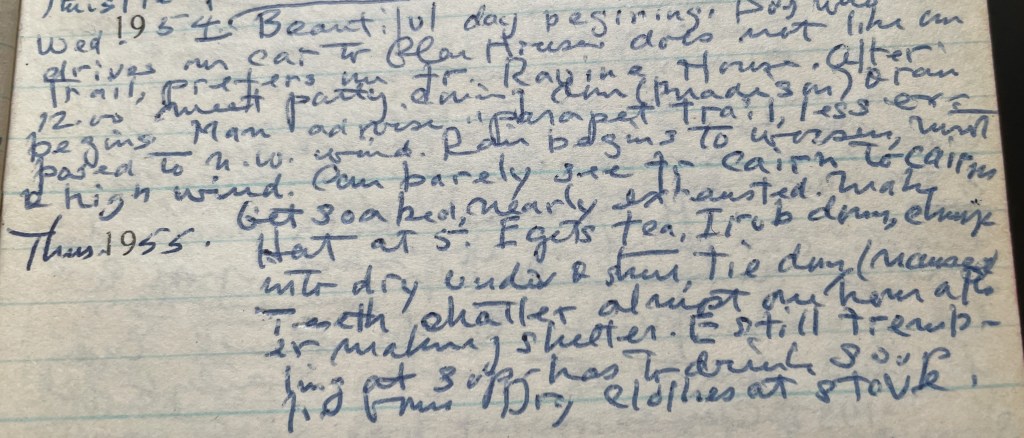 Wed. 1954. Beautiful day beginning. Boy
drives in car to does not like on
trail, prefers in fr. Ravine House. After
12.00 meet party, (Madison) & rain
begins. Man advises parapet trail, less ex-
posed to n.w. wind. Rain begins to worsen, mist
& high wind. Can barely see fr cairn to cairn
Get soaked, nearly exhausted. Make
Thus. 1955. Hut at 5. E gets tea, I rub down, change
into dry undies & shirt, lie down (
Teeth chatter almost one hour aft-
er making shelter. E still tremb-
ling at sup- has to drink soup
Dry clothes at stove.